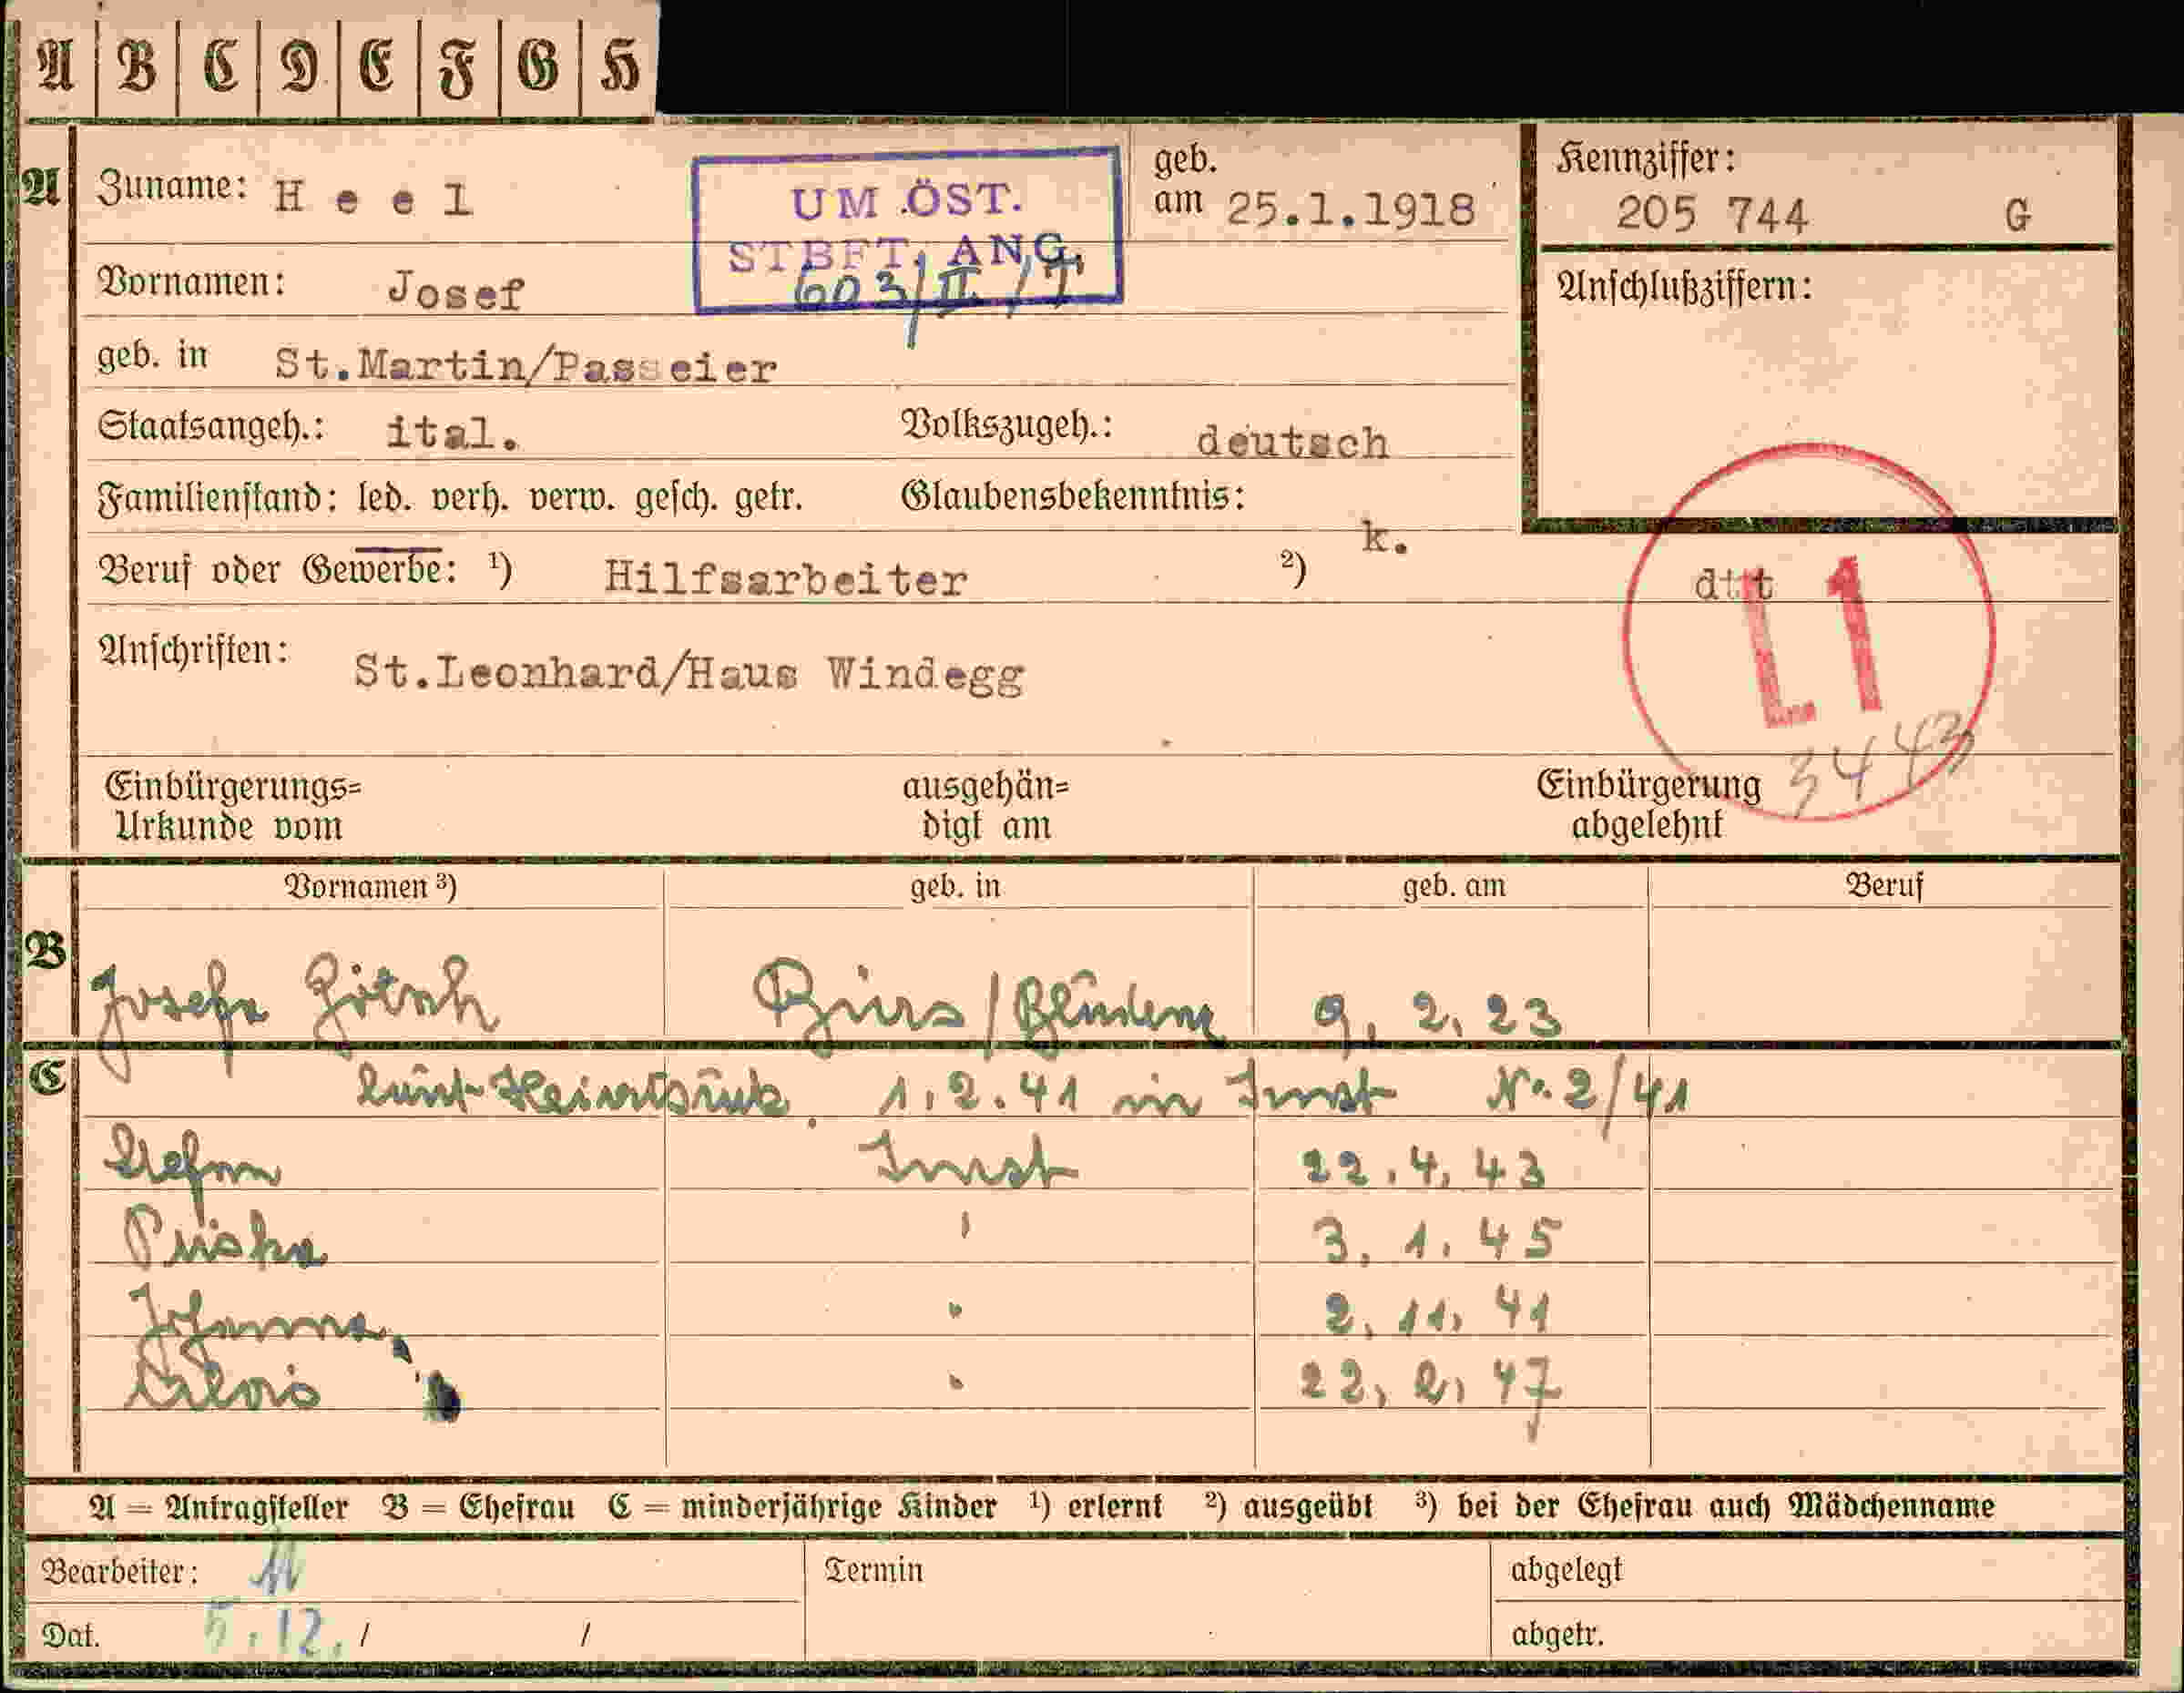 A B C D E F G H
A Zuname: Heel
UM ÖST.
STBFT. ANG.
603/II/T
geb. am 25.1.1918
Kennziffer:
205 744 G
Vornamen: Josef
Anschlußziffern:
geb. in St.Martin/Passeier
Staatsangeh.: ital. Volkszugeh.: deutsch
Familienstand: led. verh. verw. gesch. getr. Glaubensbekenntnis: k.
Beruf oder Gewerbe: ¹) Hilfsarbeiter ²) dtt
L1
Anschriften: St.Leonhard/Haus Windegg
3443
Einbürgerungs=
Urkunde vom
ausgehän=
digt am
Einbürgerung
abgelehnt
Vornamen ³) geb. in geb. am Beruf
B Josefa Götsch Bürs/Bludenz 9. 2. 23
C laut Heiratsurk. 1.2.41 in Imst No. 2/41
Stefan Imst 22. 4. 43
Priska " 3. 1. 45
Johanna " 2. 11. 41
Alois " 22. 2. 47
A = Antragsteller B = Ehefrau C = minderjährige Kinder ¹) erlernt ²) ausgeübt ³) bei der Ehefrau auch Mädchenname
Bearbeiter: Termin abgelegt
Dat. 5.12. / / abgetr.